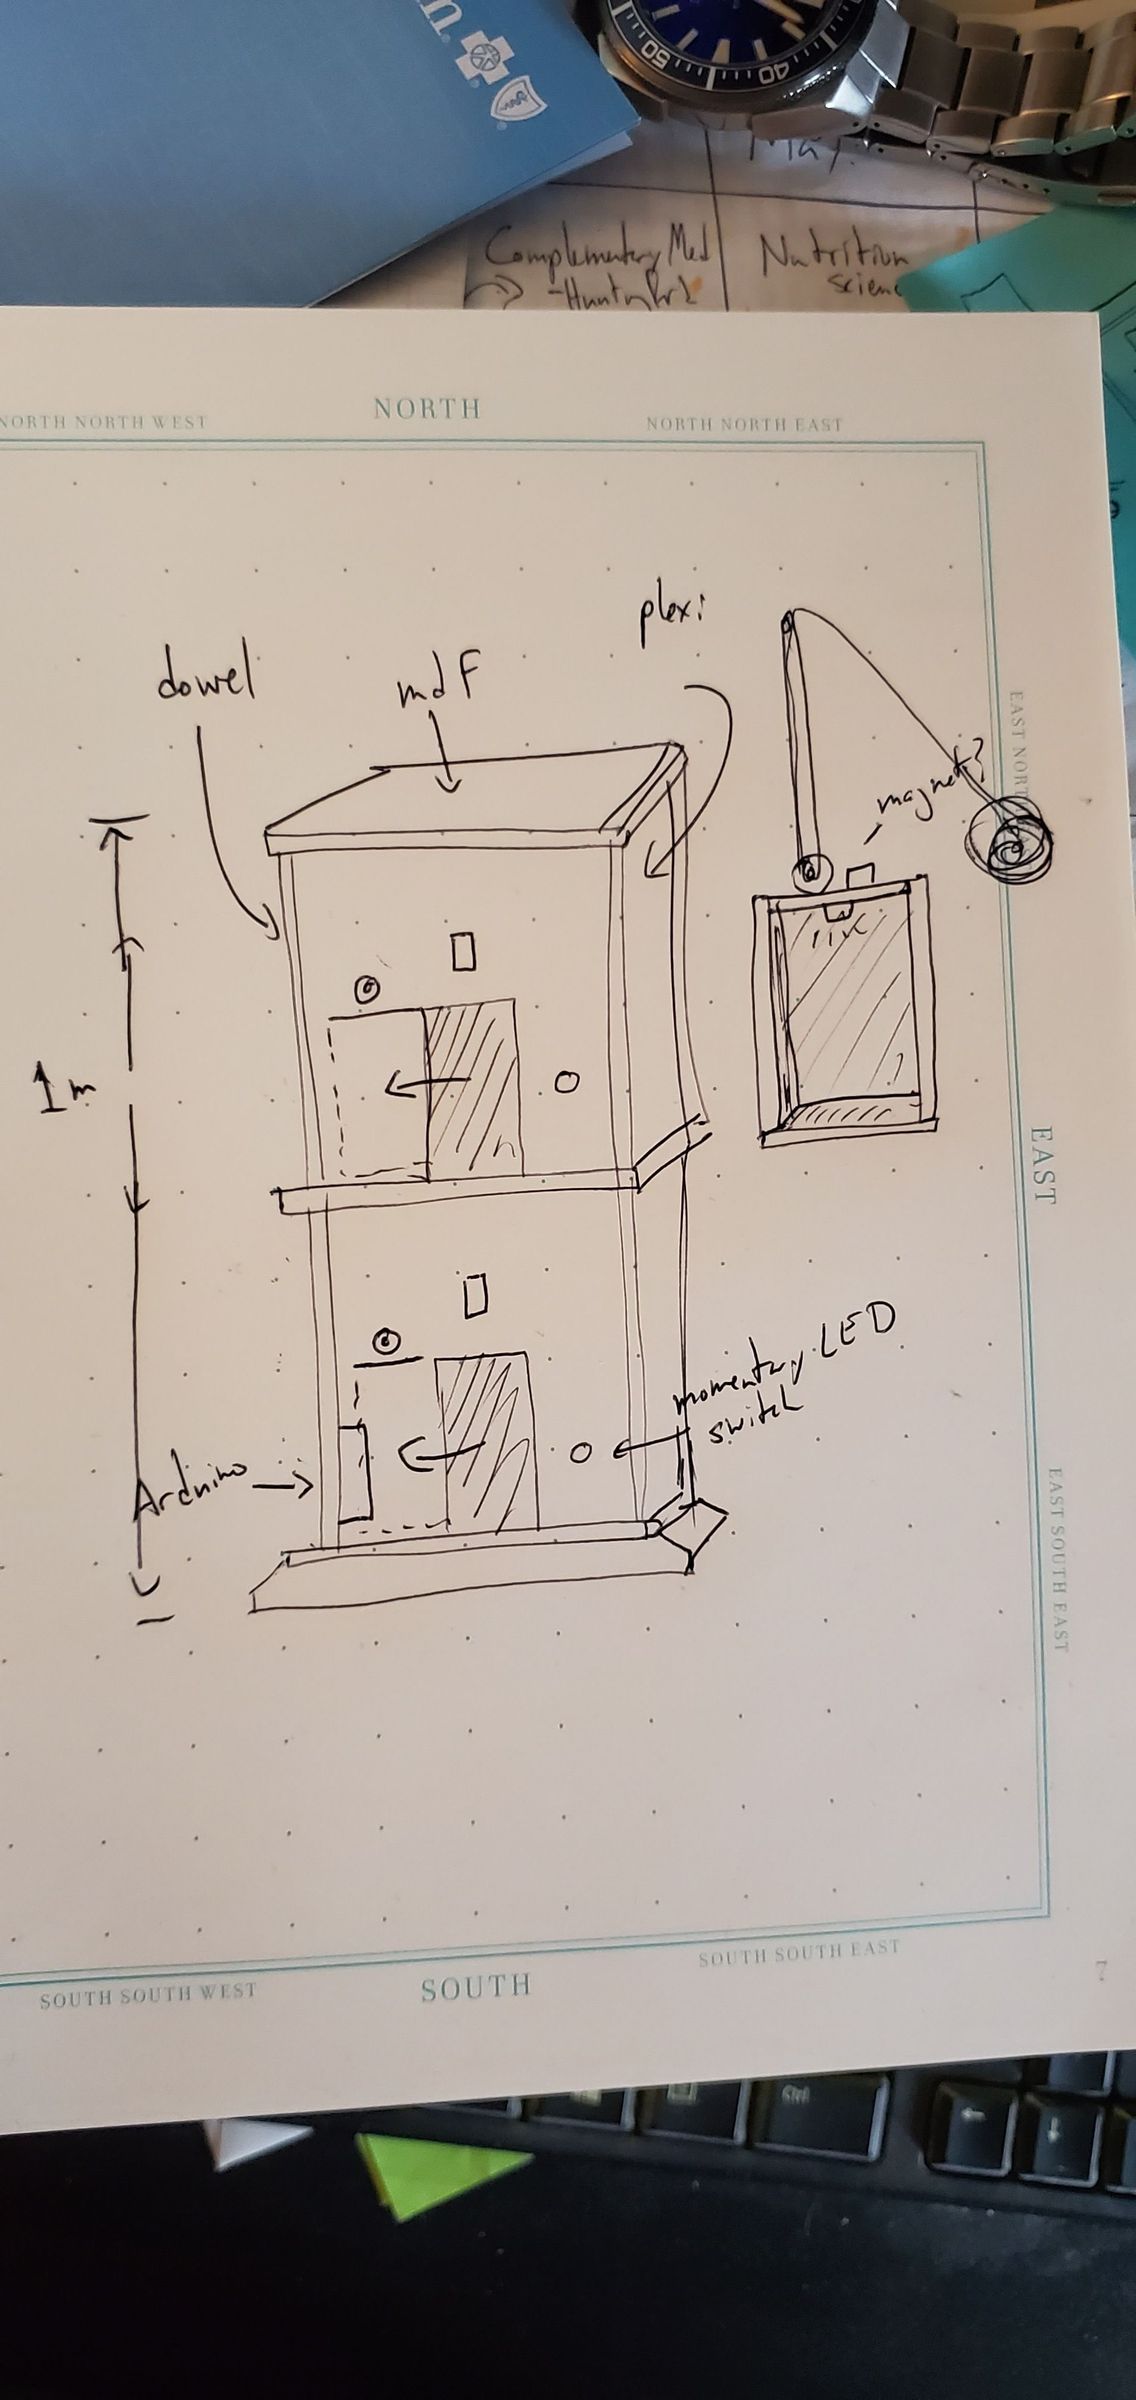 50
40
May
Complementary Med
Nutrition
science
NORTH NORTH WEST
NORTH
NORTH NORTH EAST
dowel
mdf
plexi
magnet?
1m
momentary LED
switch
Arduino
EAST
EAST SOUTH EAST
SOUTH SOUTH WEST
SOUTH
SOUTH SOUTH EAST
7
Ctrl